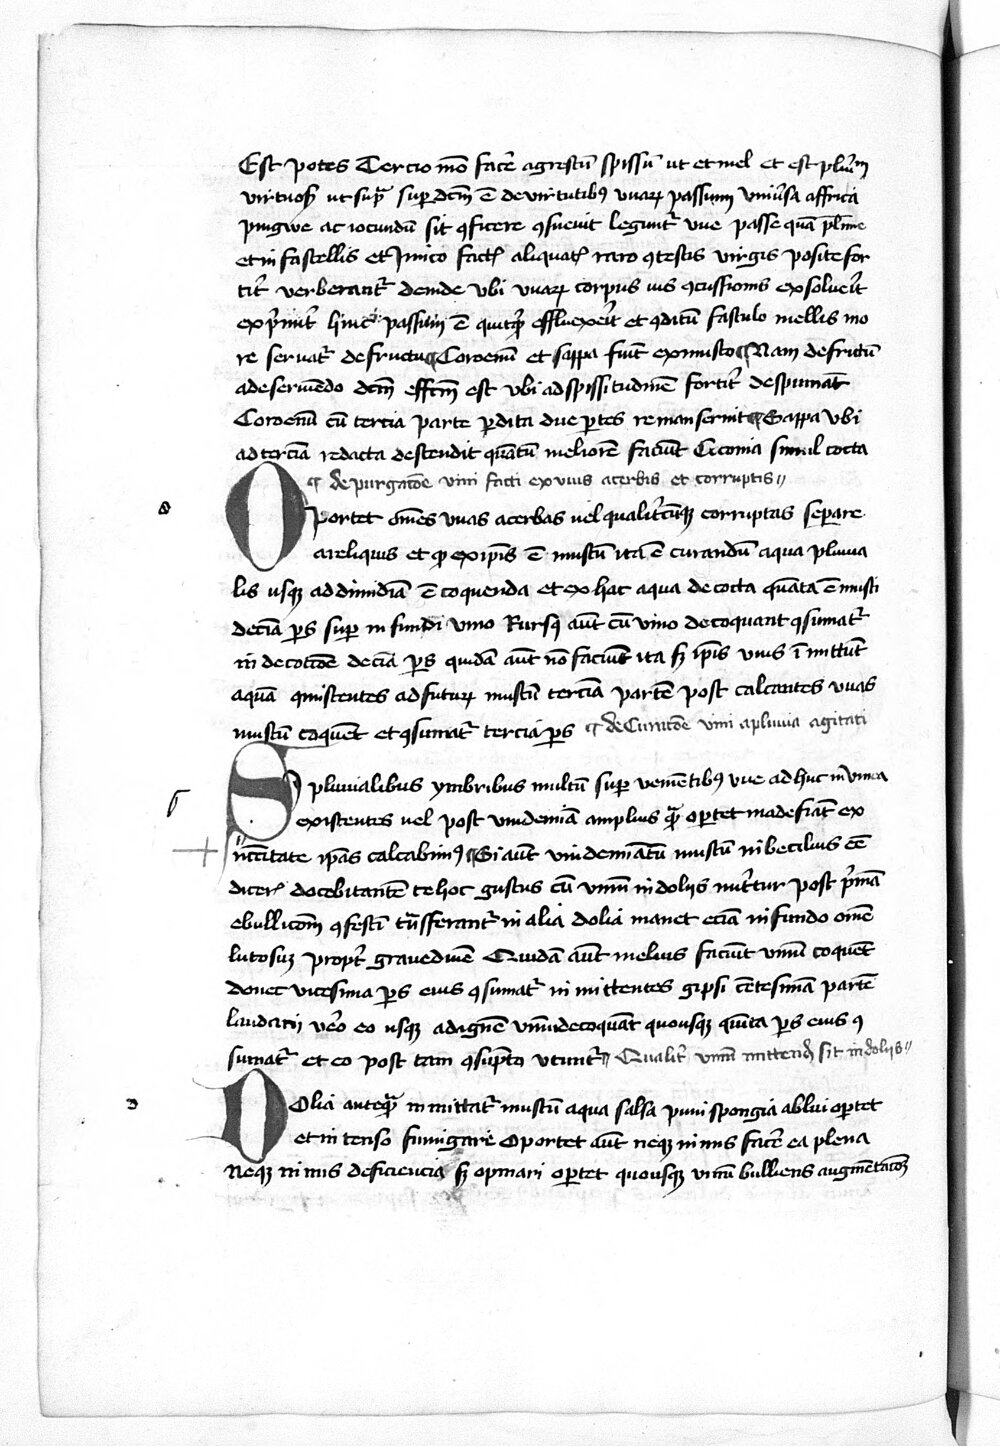 Est potes Tercio mō facē agrestū spissū ut et mel et est plurīm
virtuosȝ ut supᵃ sup dcm̄ ē de virtutibꝯ vvarꝝ passum vniūsa affrica
pingwe ac iocundū sit ꝯficere ꝯsuevit legunt͛ vve passe quā pl̄ime
et in fastellis et Jnico factꝭ aliquatꝭ raro ꝯtestis virgis posite for
tit͛ verberant͛ deinde vbi vvarꝝ corpus vis ꝯcussionis exsolverit
exp̄mit͛ hinc passum ē quitqͥd effluxerit et ꝯditū fastulo mellis mo
re servat͛ de fructu ¶ Coroenū et sappa fiūt ex musto ¶ Nam defritū
a deservendo dcm̄ effcm̄ est vbi ad spissitudinē fortit͛ despumat͛
Coroenū cū tercia parte ꝑdita due ꝑtes remanserint ¶ Sappa vbi
ad terciā redacta descendit quātū meliorē faciūt Cconia simul cocta
¶ de purgacōe vini facti ex vvis acerbis et corruptis //
Oportet om̄es vvas acerbas uel qualit͛cūqꝫ corruptas separe
a reliquis et qͩ ex ip̄is ē mustū ita ē curandū aqua pluvia
lis usqꝫ ad dimidiā ē coquenda et ex hac aqua decocta quāta ē musti
decīa ꝑs sup infundi vino Rursꝯ aut̄ cū vino decoquant ꝯsumat͛
in decoccōe decīa ꝑs quidā aut̄ nō faciūt ita sꝫ ip̄is vvis ī mittūt
aquā ꝯmistentes ad futurꝝ mustū terciā partē post calcantes vvas
mustū coquēt et ꝯsumat͛ tercia ꝑs ¶ de Curacōe vini a pluvia agitati
Si pluvialibus ymbribus multū sup venientibꝯ vve ad huc ī vinea
existentes uel post vindemiā amplius qᵃ oportet madefiāt ex
nccītate ip̄as calcabimꝯ ¶ Si aut̄ vindemiatū mustū inbecilius eē
dicetꝭ docebit autē te hoc gustus cū vinū in doliis mit͛tur post p̄mā
ebullicōm ꝯfestī tn̄sferant͛ in alia dolia manet eciā in fundo om̄e
lutosuꝫ propt͛ gravedinē Quidā aut̄ melius faciūt vinū coquēt
donec vicesima ꝑs eius ꝯsumat͛ in mittentes gipsi cētesimā partē
laudacii vēo eo usqꝫ ad agnē vinū decoquāt quousqꝫ quīta ꝑs eius ꝯ
sumat͛ et eo post tam ꝯsūpto vtunt͛ // Qualit͛ vinū mittendꝫ sit in doliis //
Dolia anteqᵃ in mittat͛ mustū aqua salsa puri spongia ablui oꝑtet
et in tenso fumigare Oportet aut̄ neqꝫ nimis facē ea plena
Neqꝫ nimis deficiencia sꝫ opinari oꝑtet quousqꝫ vinū bulliens augmētacōꝫ